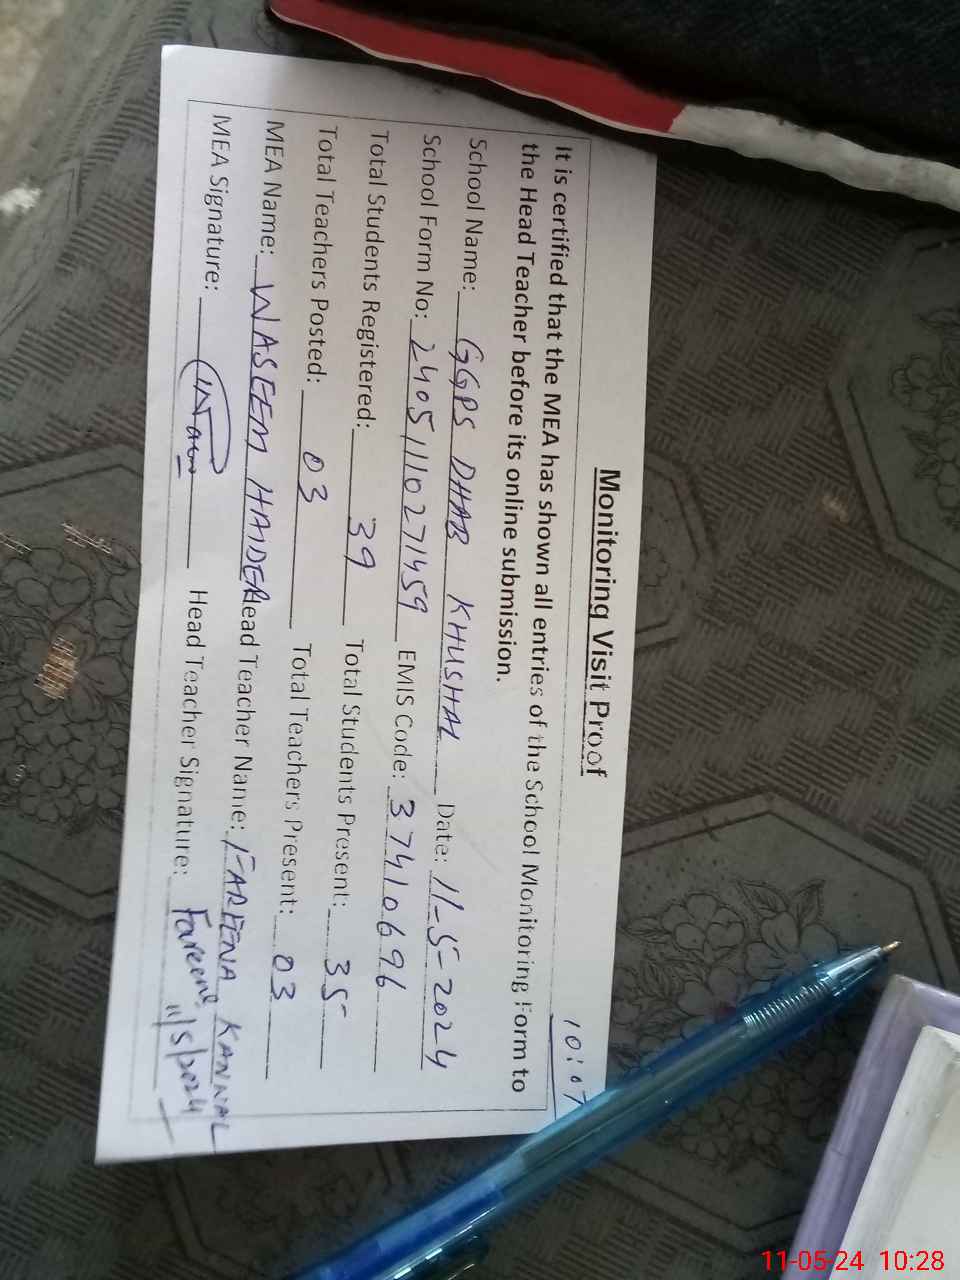 10:07
Monitoring Visit Proof
It is certified that the MEA has shown all entries of the School Monitoring Form to
the Head Teacher before its online submission.
School Name: GGPS DHAB KHUSHAL Date: 11-5-2024
School Form No: 24051110271459 EMIS Code: 37410696
Total Students Registered: 39 Total Students Present: 35
Total Teachers Posted: 03 Total Teachers Present: 03
MEA Name: WASEEM HAIDER Head Teacher Name: FAREENA KANWAL
MEA Signature: Head Teacher Signature: Fareena 11/5/2024
11-05-24 10:28